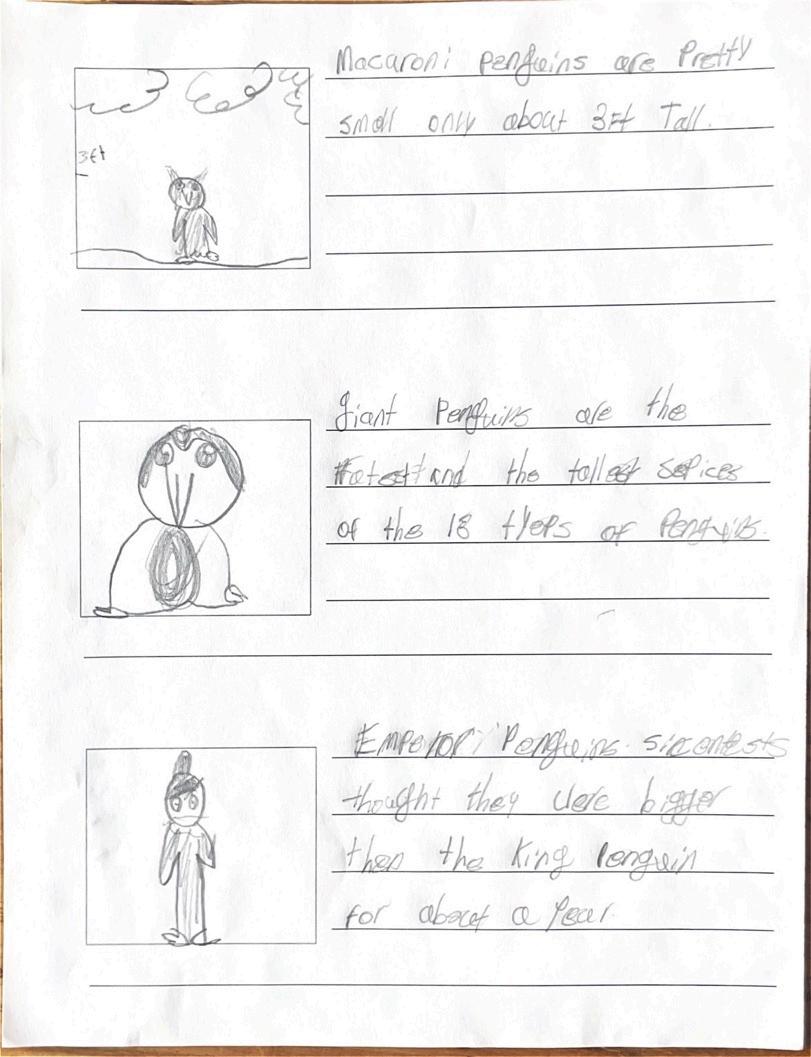 Macaroni Penguins are Pretty
small only about 3Ft Tall.
3Ft
Giant Penguins are the
fatest and the tallest sepices
of the 18 tyeps of Penguins.
Emperor Penguins. sicentests
thought they were bigger
then the King Penguin
for about a year.